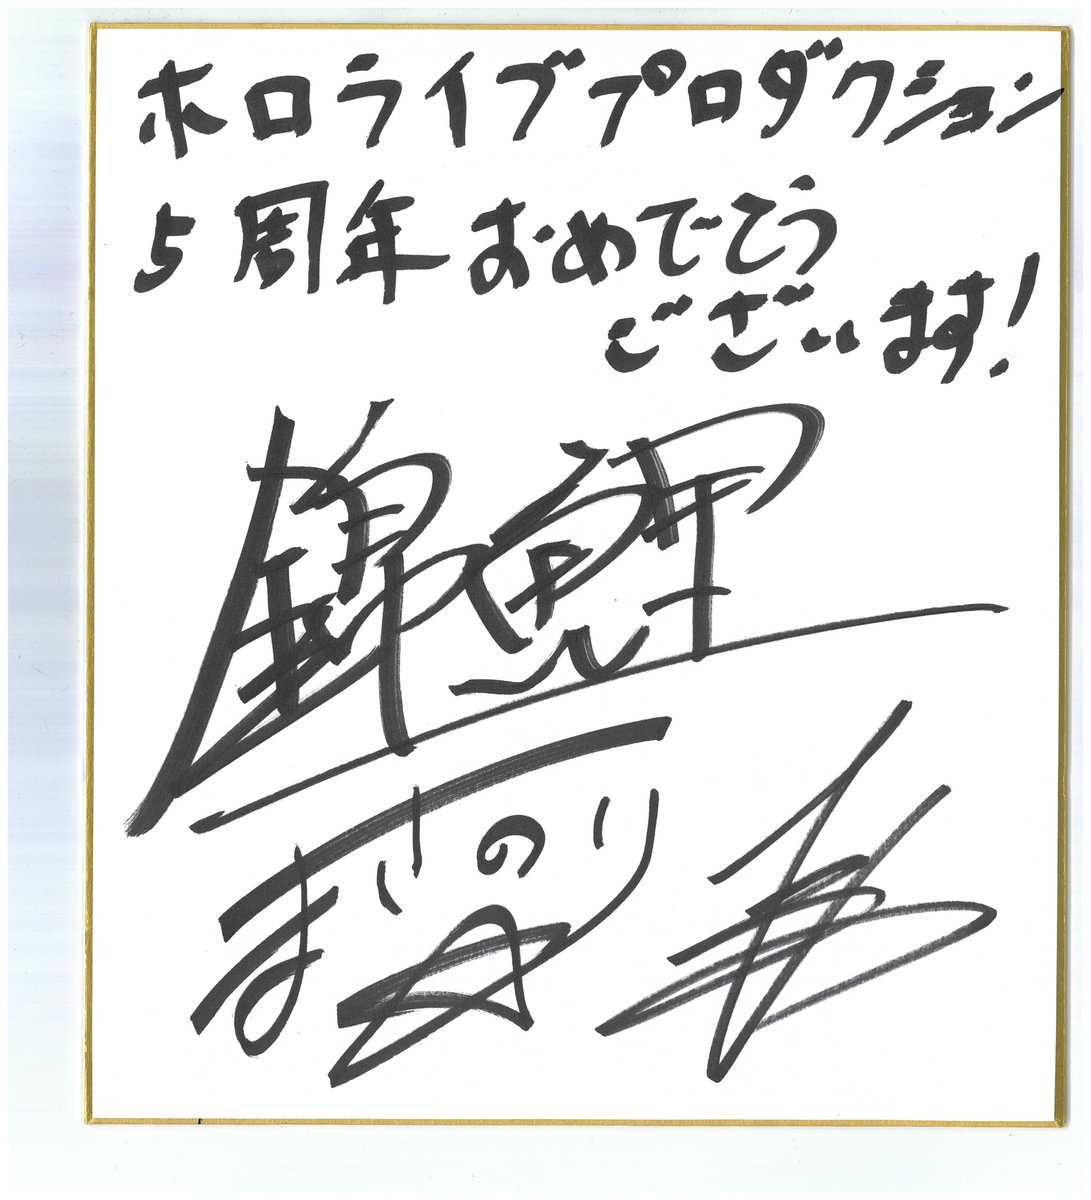 ホロライブプロダクション
5周年おめでとう
ございます!
錦鯉
まさのり